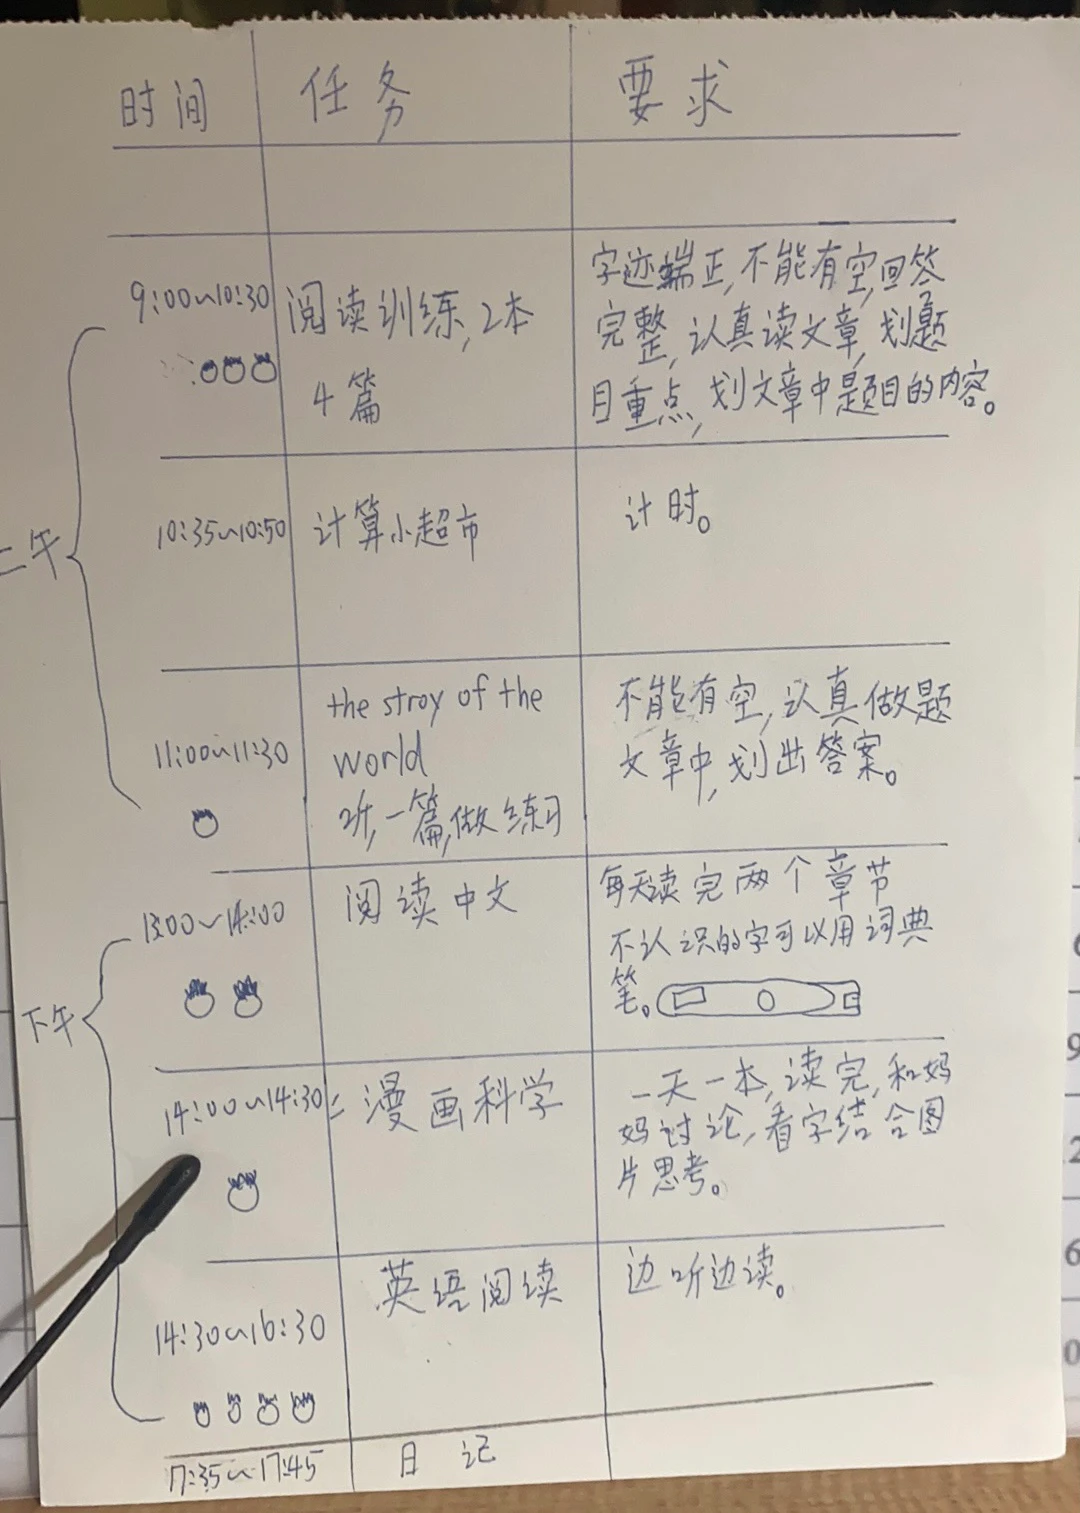 时间 任务 要求
9:00~10:30 阅读训练,2本
4篇
字迹端正,不能有空,回答
完整,认真读文章,划题
目重点,划文章中题目的内容。
上午
10:35~10:50 计算小超市 计时。
11:00~11:30
the stroy of the
world
听,一篇,做练习
不能有空,认真做题
文章中,划出答案。
下午
13:00~14:00 阅读中文
每天读完两个章节
不认识的字可以用词典
笔。
14:00~14:30 漫画科学
一天一本,读完,和妈
妈讨论,看字结合图
片思考。
14:30~16:30 英语阅读 边听边读。
17:35~17:45 日记